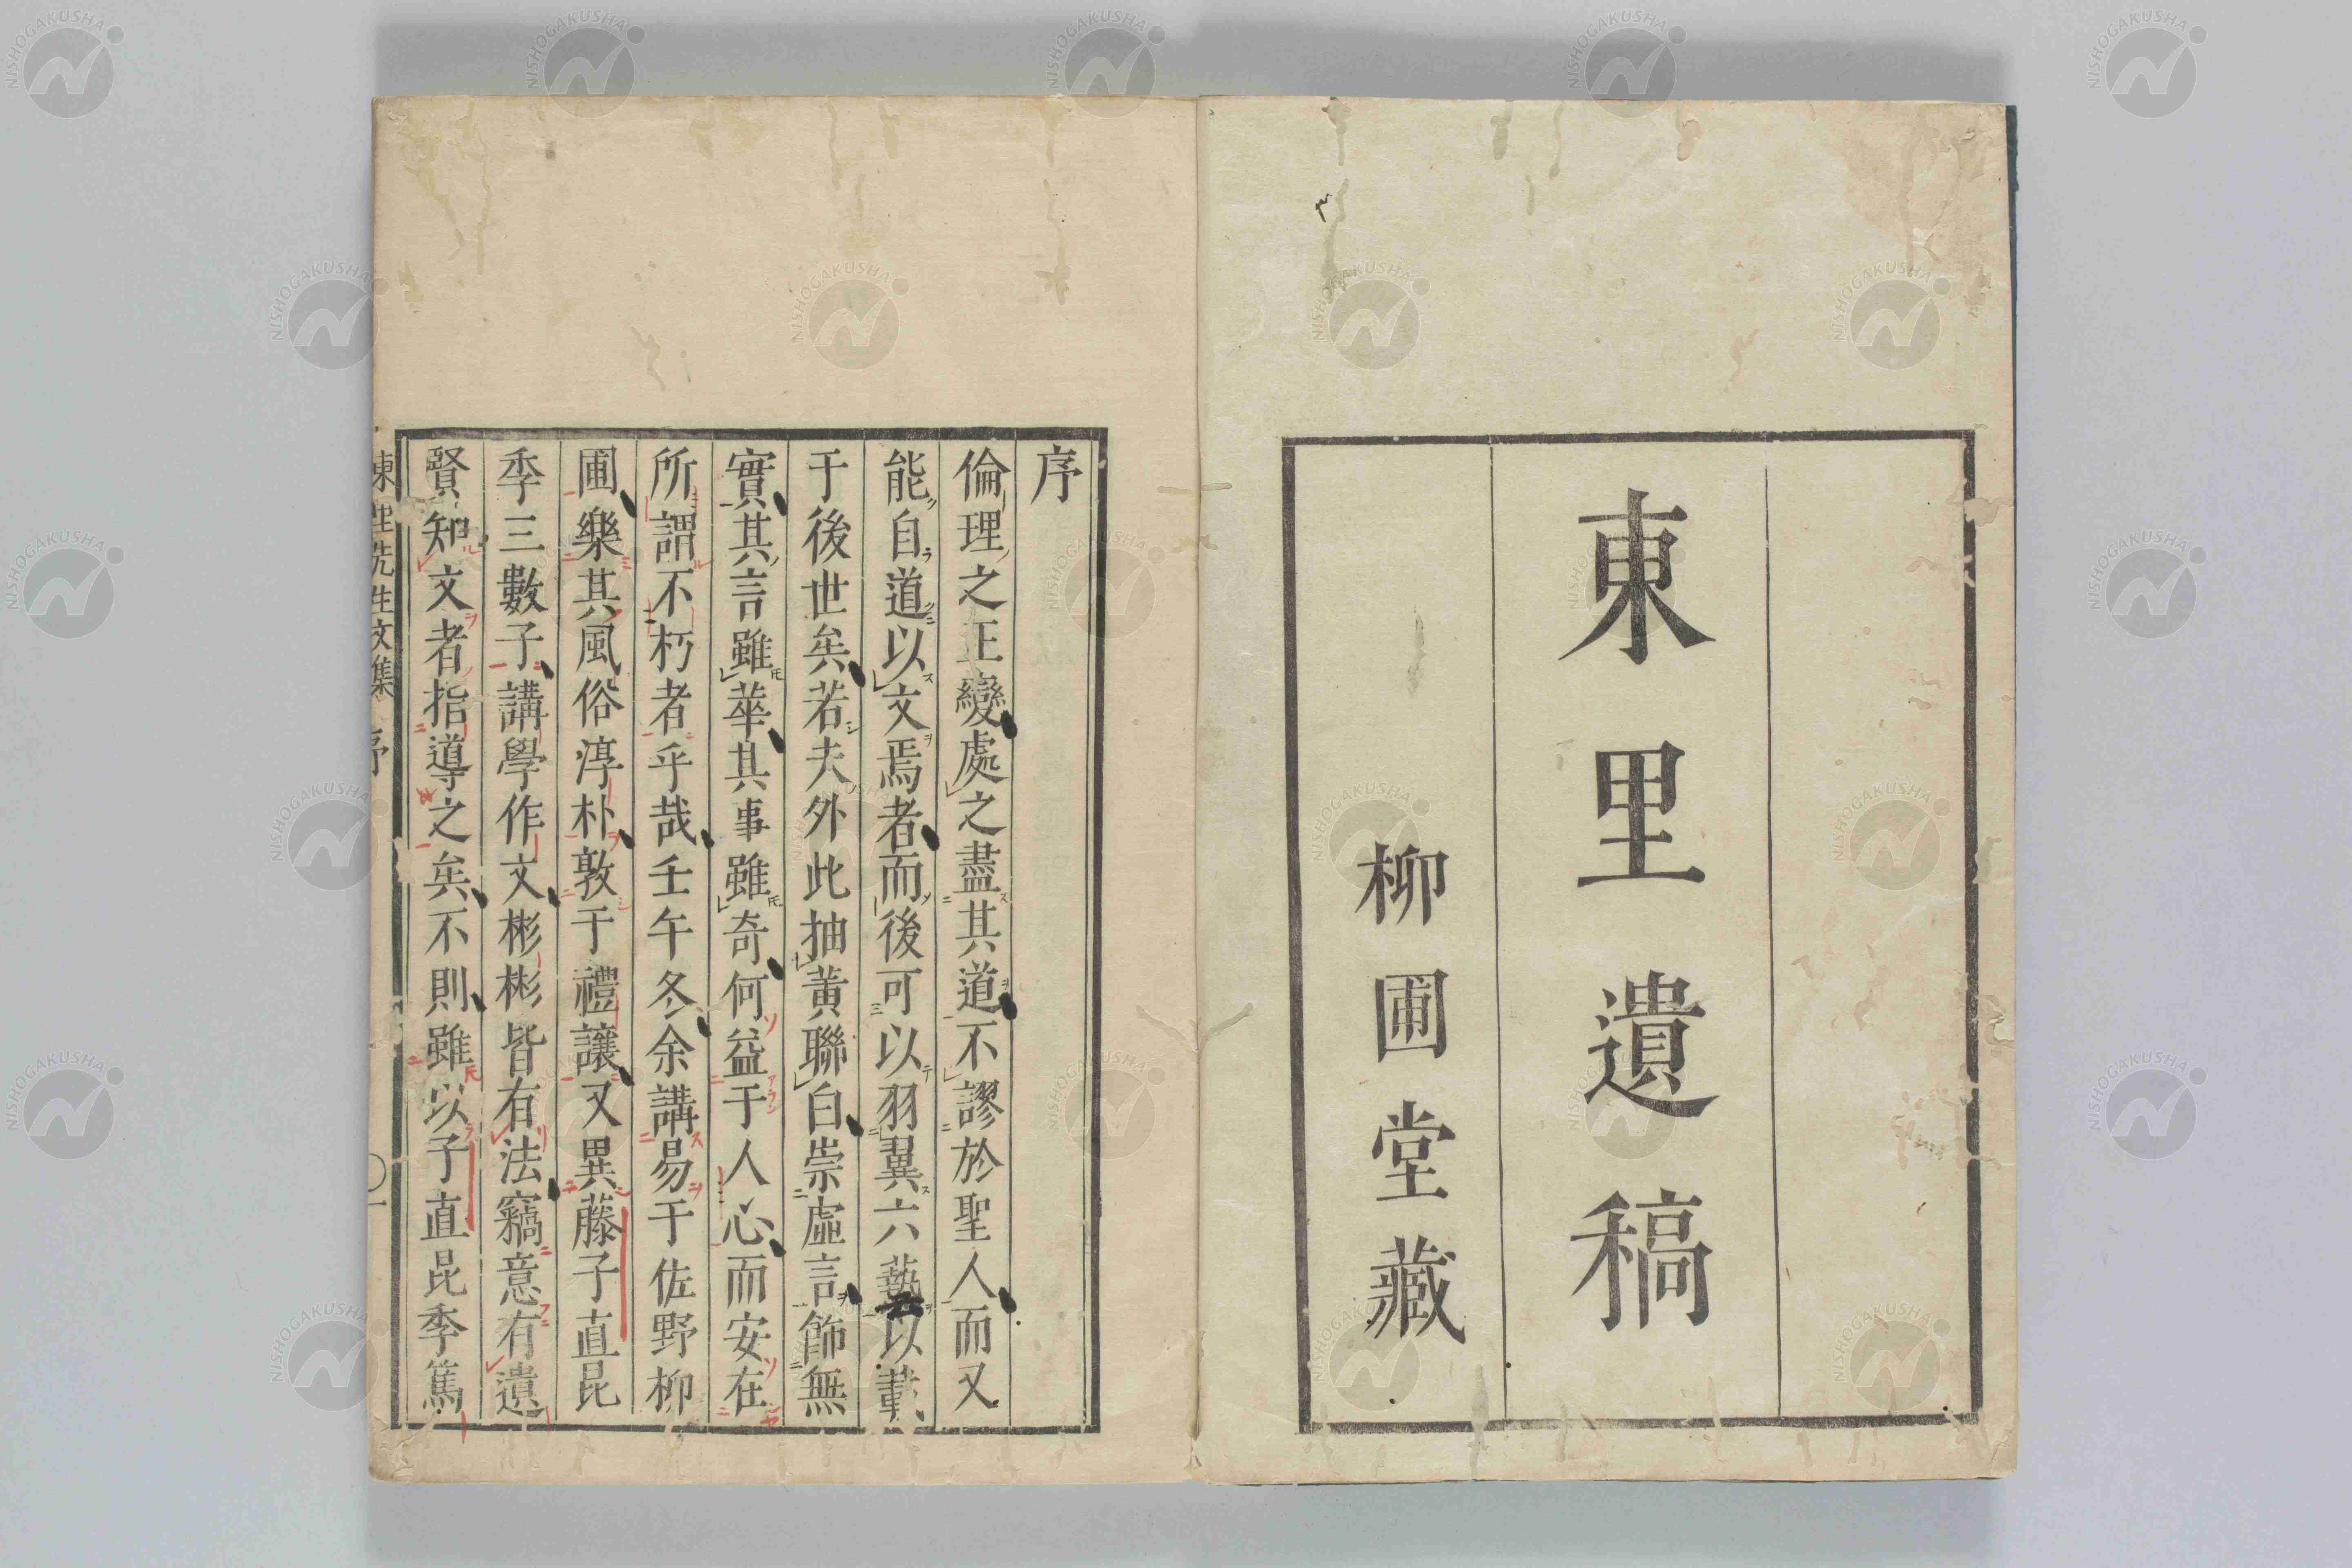 東里遺稿
柳圃堂藏
序
倫理之正變處之盡其道不謬於聖人而又
能自道以文焉者而後可以羽翼六藝以載
于後世矣若夫外此抽黃聯白崇虛言飾無
實其言雖華其事雖奇何益于人心而安在
所謂不朽者乎哉壬午冬余講易于佐野柳
圃樂其風俗淳朴敦于禮讓又異藤子直昆
季三數子講學作文彬彬皆有法竊意有遺
賢知文者指導之矣不則雖以子直昆季篤
東里先生文集 序 〇一
NISHOGAKUSHA